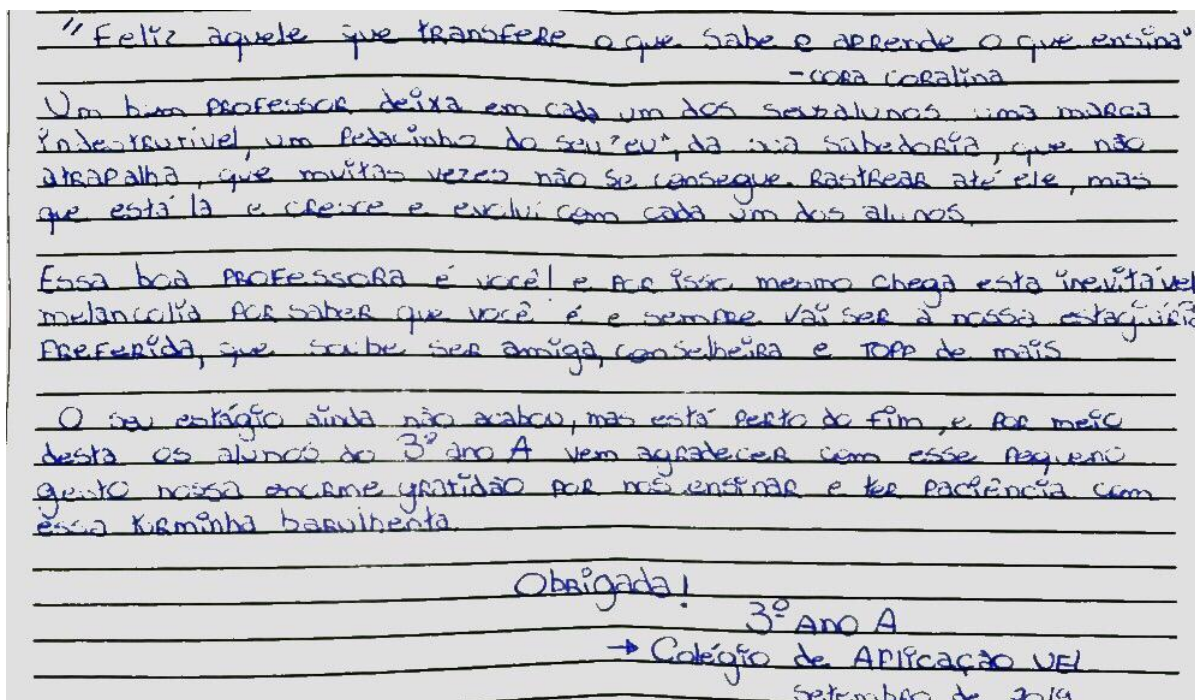 "Feliz aquele que transfere o que sabe e aprende o que ensina"
- Cora Coralina
Um bom professor deixa em cada um dos seus alunos uma marca
indestrutível, um pedacinho do seu "eu", da sua sabedoria, que não
atrapalha, que muitas vezes não se consegue rastrear até ele, mas
que está lá e cresce e evolui com cada um dos alunos.
Essa boa professora é você! e por isso mesmo chega esta inevitável
melancolia por saber que você é e sempre vai ser a nossa estagiária
preferida, que soube ser amiga, conselheira e topp de mais
O seu estágio ainda não acabou, mas está perto do fim, e por meio
desta os alunos do 3º ano A vem agradecer com esse pequeno
gesto nossa enorme gratidão por nos ensinar e ter paciência com
essa turminha barulhenta.
Obrigada!
3º ano A
→ Colégio de Aplicação UEL
Setembro de 2019